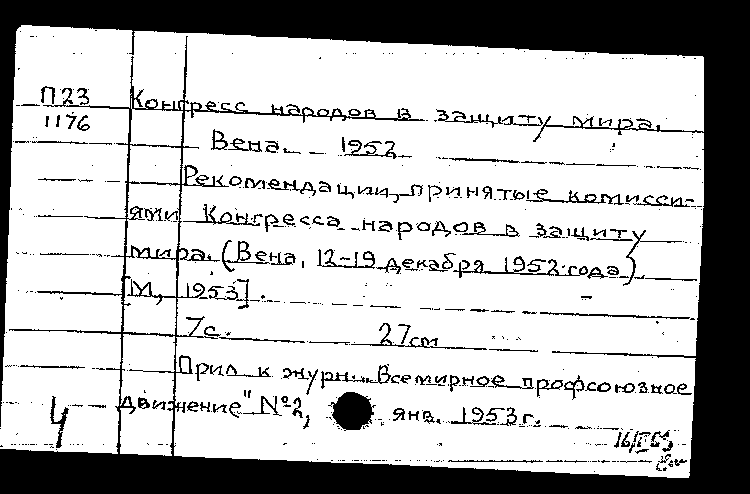 П23 Конгресс народов в защиту мира.
1176
Вена. 1952
Рекомендации, принятые комисси-
ями Конгресса народов в защиту
мира. (Вена, 12-19 декабря 1952 года).
[М, 1953].
7с. 27см
Прил к журн. „Всемирное профсоюзное
движение" №2, янв. 1953г.
Ч